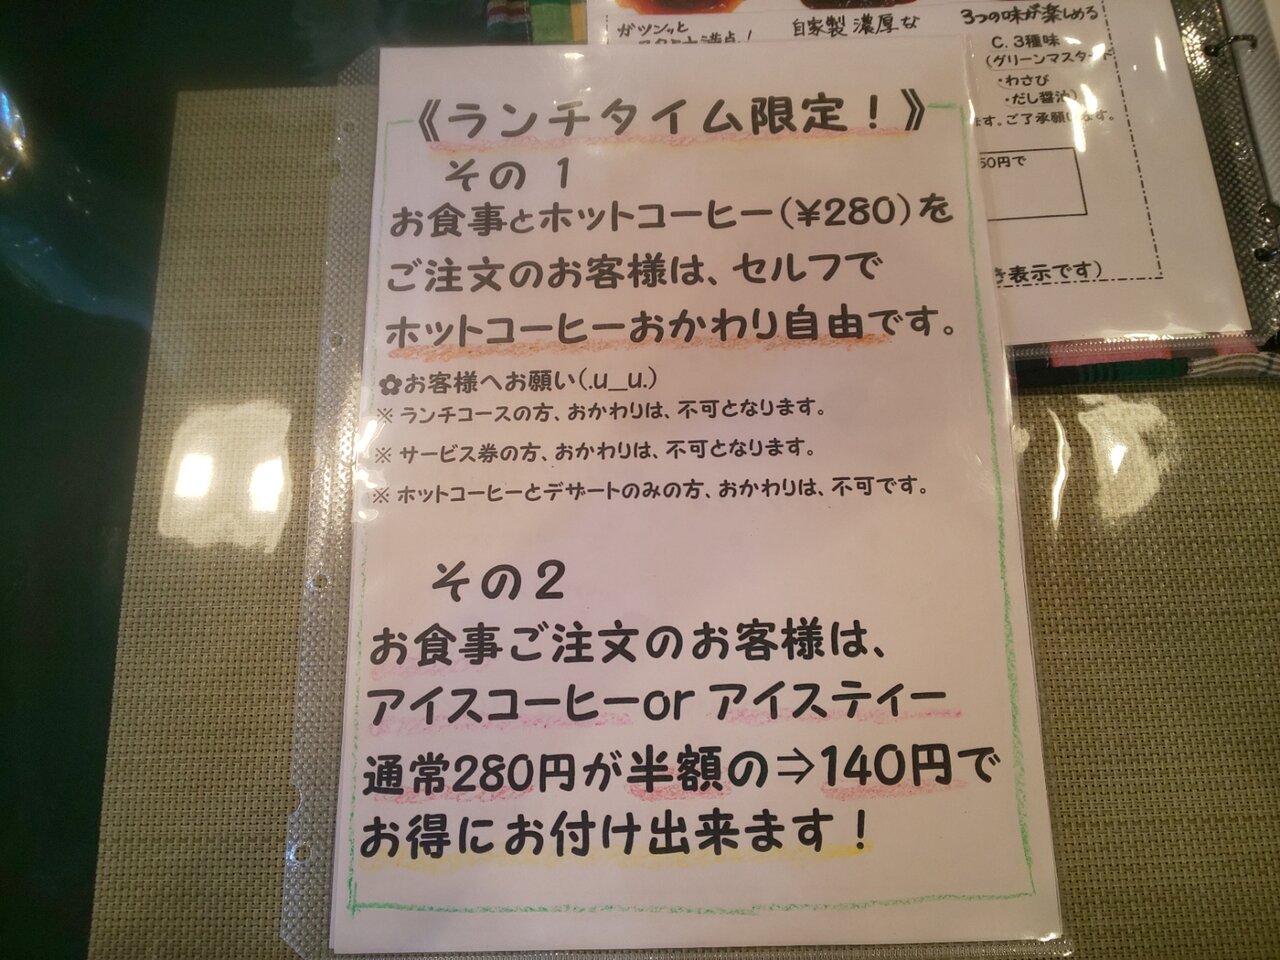 ガツンッと
自家製 濃厚な
3つの味が楽しめる
C. 3種味
(グリーンマスタード
・わさび
・だし醤油)
ます。ご了承願います。
50円で
き表示です)
《ランチタイム限定！》
その 1
お食事とホットコーヒー(¥280)を
ご注文のお客様は、セルフで
ホットコーヒーおかわり自由です。
✿お客様へお願い(.u__u.)
※ ランチコースの方、おかわりは、不可となります。
※ サービス券の方、おかわりは、不可となります。
※ ホットコーヒーとデザートのみの方、おかわりは、不可です。
その２
お食事ご注文のお客様は、
アイスコーヒーor アイスティー
通常280円が半額の⇒140円で
お得にお付け出来ます！